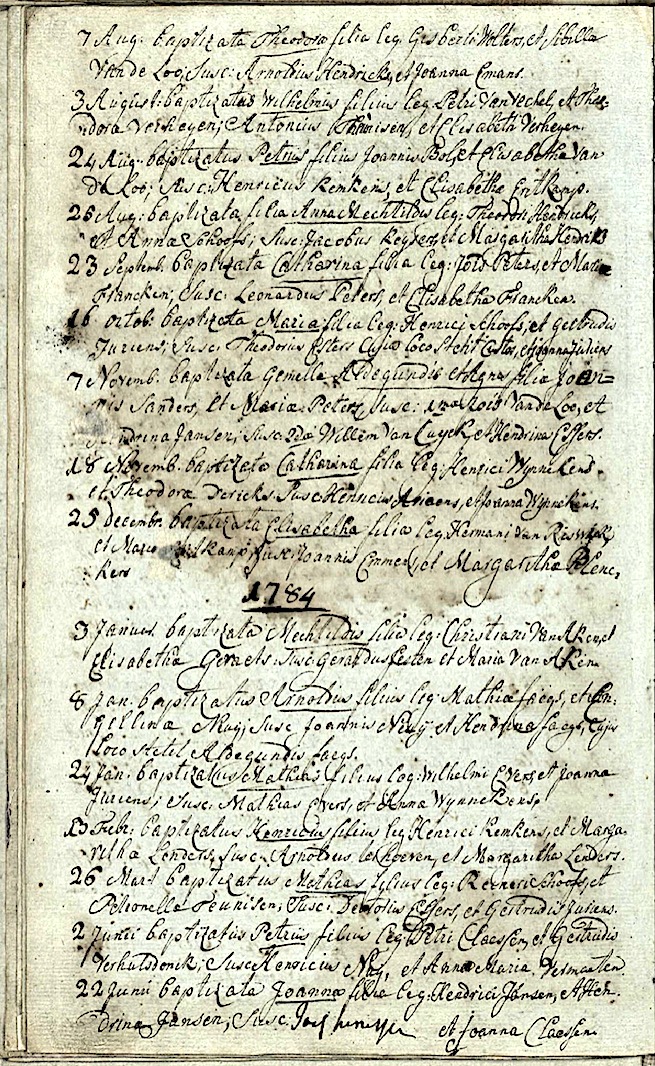 7 Aug. baptizata Theodora filia leg. Gisberti Wolters, et Sibilla
Van de Loo; Susc: Arnoldus Hendricks, et Joanna Emans.
3 August: baptizatus Wilhelmus filius leg. Petri Van Veckel, et Theo-
dora Verheyen; Antonius Thunisen, et Elisabeth Verheyen.
24 Aug. baptizatus Petrus filius Joannis Bol, et Elisabetha Van
de Loo; Susc: Henricus Kemkens, et Elisabetha
25 Aug. baptizata filia Anna Mechtildis leg: Theodori Hendricks,
et Anna Schoofs; Susc: Jacobus Keysers, et Margaritha Hendriks
23 Septemb. baptizata Catharina filia leg: Jois Peters, et Maria
Francken; Susc: Leonardus Peters, et Elisabetha Francken.
16 octob. baptizata Maria filia leg: Henrici Schoofs, et Gertrudis
Juriens; Susc: Theodorus Essers Cujus loco stetit et Joanna Juriens
7 Novemb. baptizata Gemella Aldegundis et Agnes filia Joan-
nis Sanders, et Maria Peters, Susc: Van de Loo, et
Hendrina Jansen; Susc: 2dae Willem Van Cuyck, et Hendrina Essers.
18 Novemb. baptizata Catharina filia leg: Henrici Wynnekens
et Theodora Dericks. Susc: Henricus Ariaens, et Joanna Wynnekens.
25 decembr. baptizata Elisabetha filia leg. Hermani Van Rieswick
et Maria Susc: Joannis Emmers, et Margaritha Henc-
kers
1784
3 Januar. baptizata Mechtildis filia leg: Christiani Van Aken, et
Elisabetha Geraets. Susc: Gerardus et Maria Van Aken.
8 Jan. baptizatus Arnoldus filius leg: Mathia Jaegs, et
Nuy; Susc Joannis Nuy et Hendrina Jaegs, Cujus
Loco stetit Aldegundis Jaegs.
24 Jan. baptizatus Mathias filius leg: Wilhelmi Evers, et Joanna
Juriens; Susc: Mathias Evers, et Anna Wynnekens.
13 Febr: baptizatus Henricus filius leg: Henrici Kemkens, et Marga-
ritha Lenders, Susc: Arnoldus et Margaritha Lenders.
26 Mart baptizatus Mathias filius leg: Reineri Schoofs, et
Petronella Teunisen; Susc: Essers, et Gertrudis Juriens.
2 Junii baptizatus Petrus filius leg: Petri Claessen, et Gertrudis
Verhulsdonck; Susc: Henricus Nuy, et Anna Maria Vermasten
22 Junii baptizata Joanna filia leg: Hendrici Jansen, et Hen-
drina Jansen; Susc: et Joanna Claessen